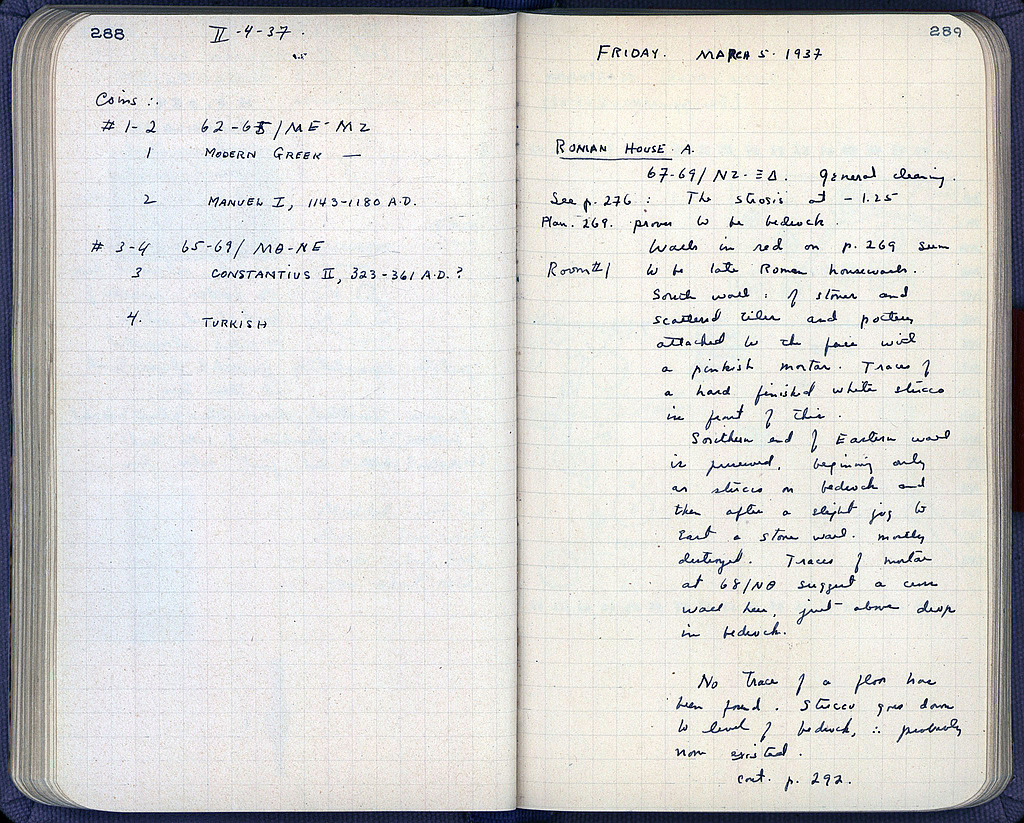 288
II-4-37.
Coins :.
# 1-2 62-65/ME-MZ
1 MODERN GREEK —
2 MANUEL I, 1143-1180 A.D.
# 3-4 65-69/MΘ-NE
3 CONSTANTIUS II, 323-361 A.D.?
4. TURKISH
289
FRIDAY. MARCH 5. 1937
ROMAN HOUSE. A.
67-69/NZ-ΞΔ. general cleaning.
See p. 276 : The strosis at -1.25
Plan. 269. proves to be bedrock.
Walls in red on p. 269 seem
Room #1 to be late Roman housewalls.
South wall: of stones and
scattered tiles and pottery
attached to the face with
a pinkish mortar. Traces of
a hard finished white stucco
in front of this.
Southern end of Eastern wall
is preserved, beginning only
as stucco on bedrock and
then after a slight jog to
East a stone wall. mostly
destroyed. Traces of mortar
at 68/NΘ suggest a cross
wall here, just above drop
in bedrock.
No trace of a floor has
been found. Stucco goes down
to level of bedrock, ∴ probably
none existed.
cont. p. 292.